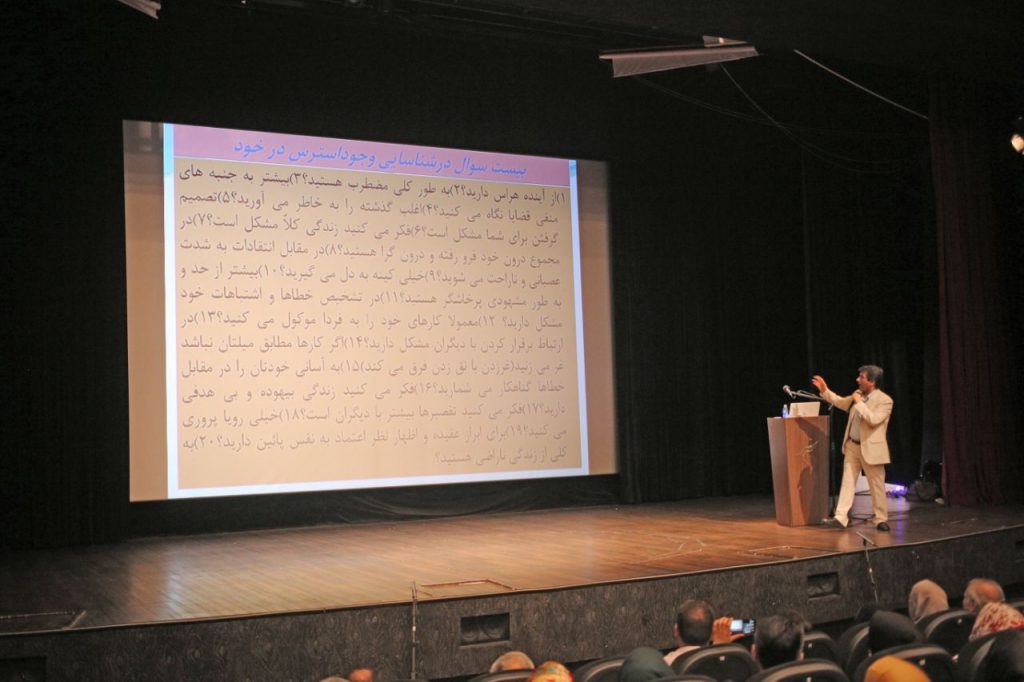 بیست سوال درشناسایی وجوداسترس در خود
۱)از آینده هراس دارید؟۲)به طور کلی مضطرب هستید؟۳)بیشتر به جنبه های
منفی قضایا نگاه می کنید؟۴)اغلب گذشته را به خاطر می آورید؟۵)تصمیم
گرفتن برای شما مشکل است؟۶)فکر می کنید زندگی کلاً مشکل است؟۷)در
مجموع درون خود فرو رفته و درون گرا هستید؟۸)در مقابل انتقادات به شدت
عصبانی و ناراحت می شوید؟۹)خیلی کینه به دل می گیرید؟۱۰)بیشتر از حد و
به طور مشهودی پرخاشگر هستید؟۱۱)در تشخیص خطاها و اشتباهات خود
مشکل دارید؟ ۱۲)معمولا کارهای خود را به فردا موکول می کنید؟۱۳)در
ارتباط برقرار کردن با دیگران مشکل دارید؟۱۴)اگر کارها مطابق میلتان نباشد
غر می زنید(غرزدن با نق زدن فرق می کند)۱۵)به آسانی خودتان را در مقابل
خطاها گناهکار می شمارید؟۱۶)فکر می کنید زندگی بیهوده و بی هدفی
دارید؟۱۷)فکر می کنید تقصیرها بیشتر با دیگران است؟۱۸)خیلی رویا پروری
می کنید؟۱۹)برای ابراز عقیده و اظهار نظر اعتماد به نفس پائین دارید؟۲۰)به
کلی از زندگی ناراضی هستید؟